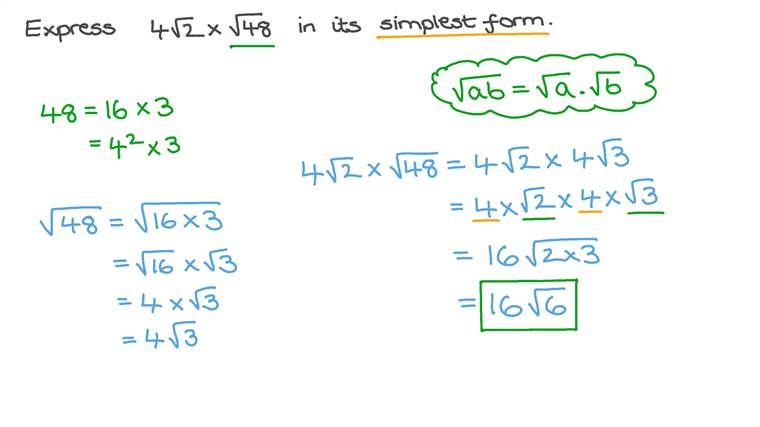 Express 4√2 × √48 in its simplest form.
√ab = √a . √b
48 = 16 × 3
= 4² × 3
√48 = √16 × 3
= √16 × √3
= 4 × √3
= 4√3
4√2 × √48 = 4√2 × 4√3
= 4 × √2 × 4 × √3
= 16√2×3
= 16√6